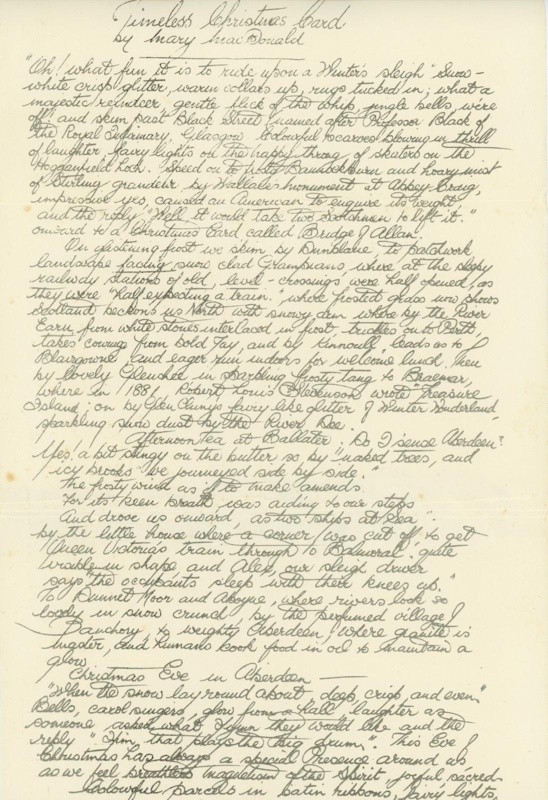 Timeless Christmas Card
by Mary MacDonald
"Oh! what fun it is to ride upon a Winter's sleigh" Snow-
white crisp glitter, warm collars up, rugs tucked in; what a
majestic reindeer, gentle flick of the whip, jingle bells, we're
off and skim past Black Street named after Professor Black of
the Royal Infirmary, Glasgow. Colourful scarves blowing in thrill
of laughter, fairy lights on the happy throng of skaters on the
Hogganfield Loch. Speed on to frosty Bannockburn and hoary mist
of Stirling grandeur by Wallace's monument at Abbey Craig,
impressive yes, caused an American to enquire its weight,
and the reply "Well, it would take two Scotchmen to lift it."
onward to a Christmas Card called Bridge of Allan.
On glistening frost we skim by Dunblane, to patchwork
landscape facing snow clad Grampians, where at the sleepy
railway stations of old, level-crossings were half opened, as
they were "half expecting a train." where frosted grass now shows
Scotland beckons us North with snowy arm where by the River
Earn from white stones interlaced in frost, trickles on to Perth,
takes cowrag from bold Tay, and by Kinnoull leads us to
Blairgowrie and eager run indoors for welcome lunch. Then
by lovely Glenshee in sparkling frosty tang to Braemar,
where in 1881 Robert Louis Stevenson wrote Treasure
Island; on by Glen Clunys fairy like glitter of Winter Wonderland
sparkling snow dust by the River Dee.
Afternoon Tea at Ballater: Do I sense Aberdeen?
Yes! a bit stingy on the butter so by "naked trees, and
icy brooks" we journeyed side by side."
the frosty wind as if to make amends
For its keen breath was aiding to our steps
And drove us onward, as two ships at sea".
by the little house where a corner was cut off to get
Queen Victoria's train through to Balmoral. quite
in shape and Alex, our sleigh driver
says "the occupants sleep with their knees up."
To Dunnet Moor and Aboyne, where rivers look so
lovely in snow crunch, by the perfumed village of
Banchory to weighty Aberdeen, where granite is
and humans cook food in oil to maintain a
glow.
Christmas Eve in Aberdeen —
"When the snow lay round about, deep, crisp, and even"
Bells, carol singers, glow from a hall, laughter as
someone asked what hymn they would like and the
reply "Him, that plays the big drum". This Eve of
Christmas has always a special Presence around us
as we feel breathless magnetism of the Spirit, joyful sacred.
Colourful parcels in satin ribbons, fairy lights,